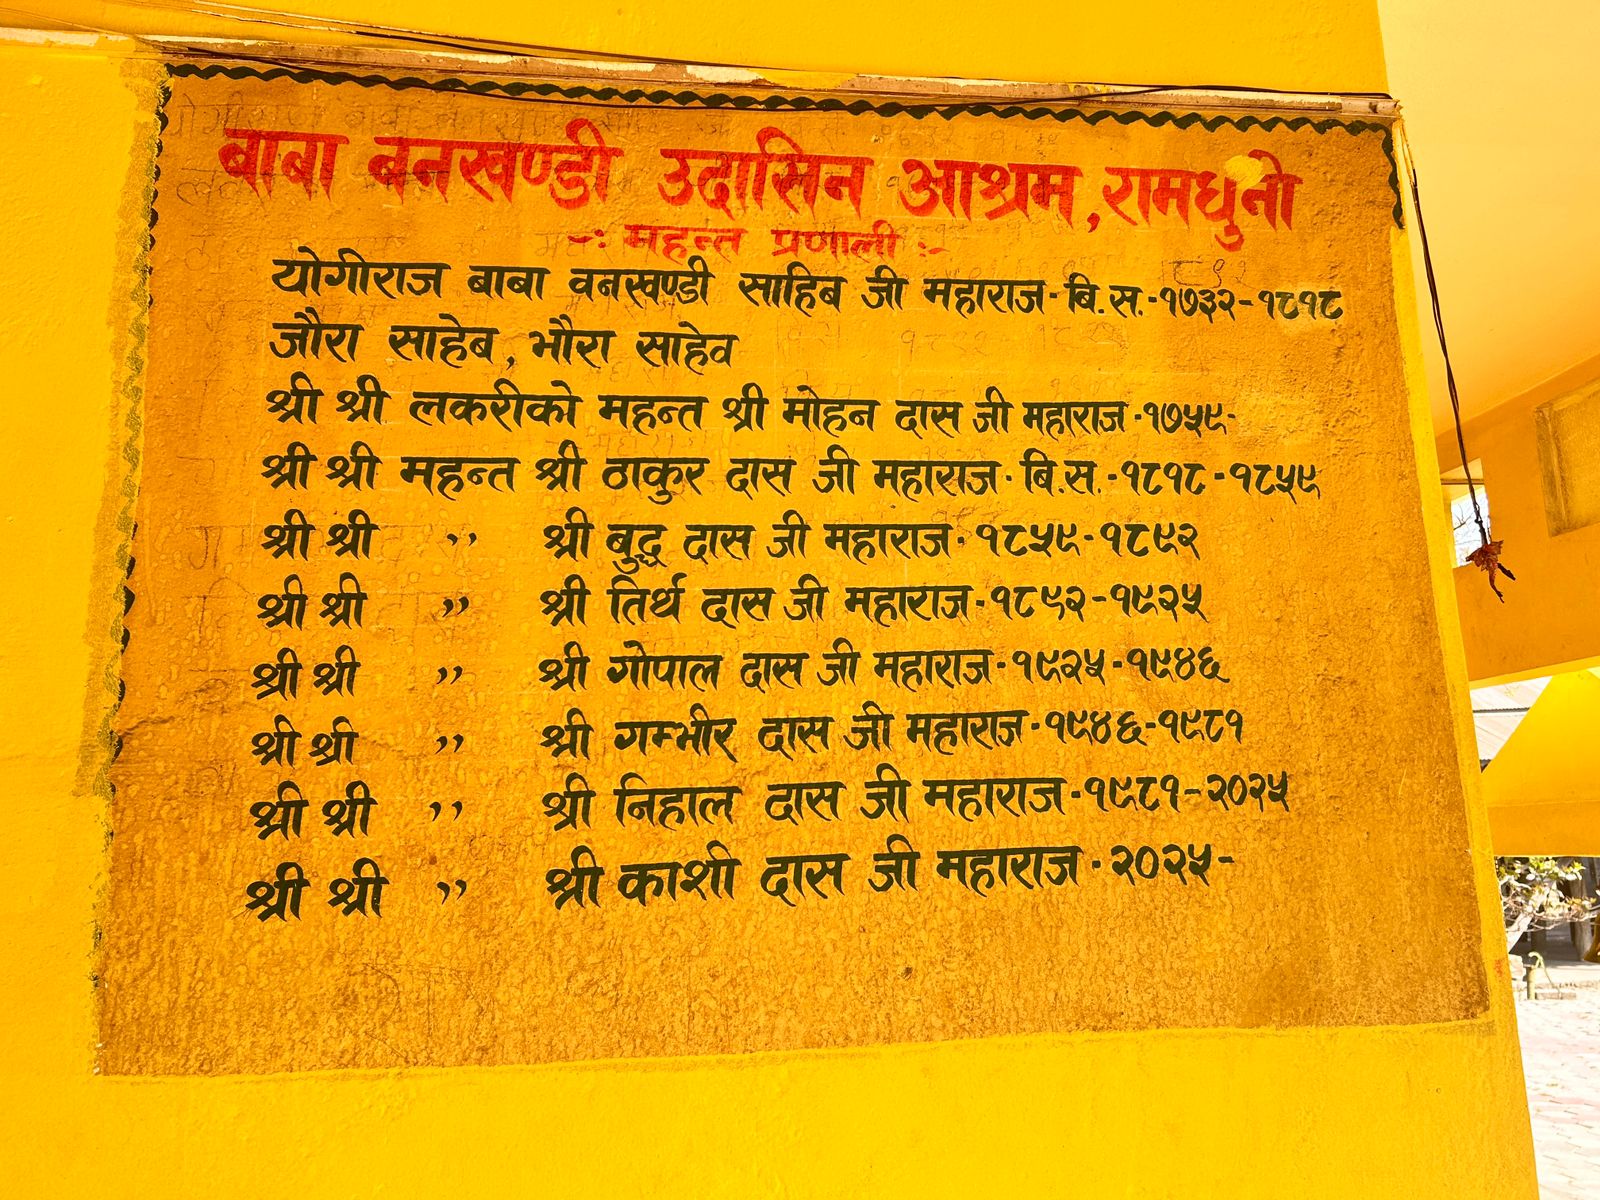 बाबा बनखण्डी उदासिन आश्रम, रामधुनी
-: महन्त प्रणाली :-
योगीराज बाबा बनखण्डी साहिब जी महाराज- बि.स.-१७३२-१८१८
जौरा साहेब, भौरा साहेव
श्री श्री लकरीको महन्त श्री मोहन दास जी महाराज-१७५९-
श्री श्री महन्त श्री ठाकुर दास जी महाराज- बि.स.-१८१८-१८५९
श्री श्री ,, श्री बुद्ध दास जी महाराज-१८५९-१८९२
श्री श्री ,, श्री तिर्थ दास जी महाराज-१८९२-१९२५
श्री श्री ,, श्री गोपाल दास जी महाराज-१९२५-१९४६
श्री श्री ,, श्री गम्भीर दास जी महाराज-१९४६-१९८१
श्री श्री ,, श्री निहाल दास जी महाराज-१९८१-२०२५
श्री श्री ,, श्री काशी दास जी महाराज-२०२५-